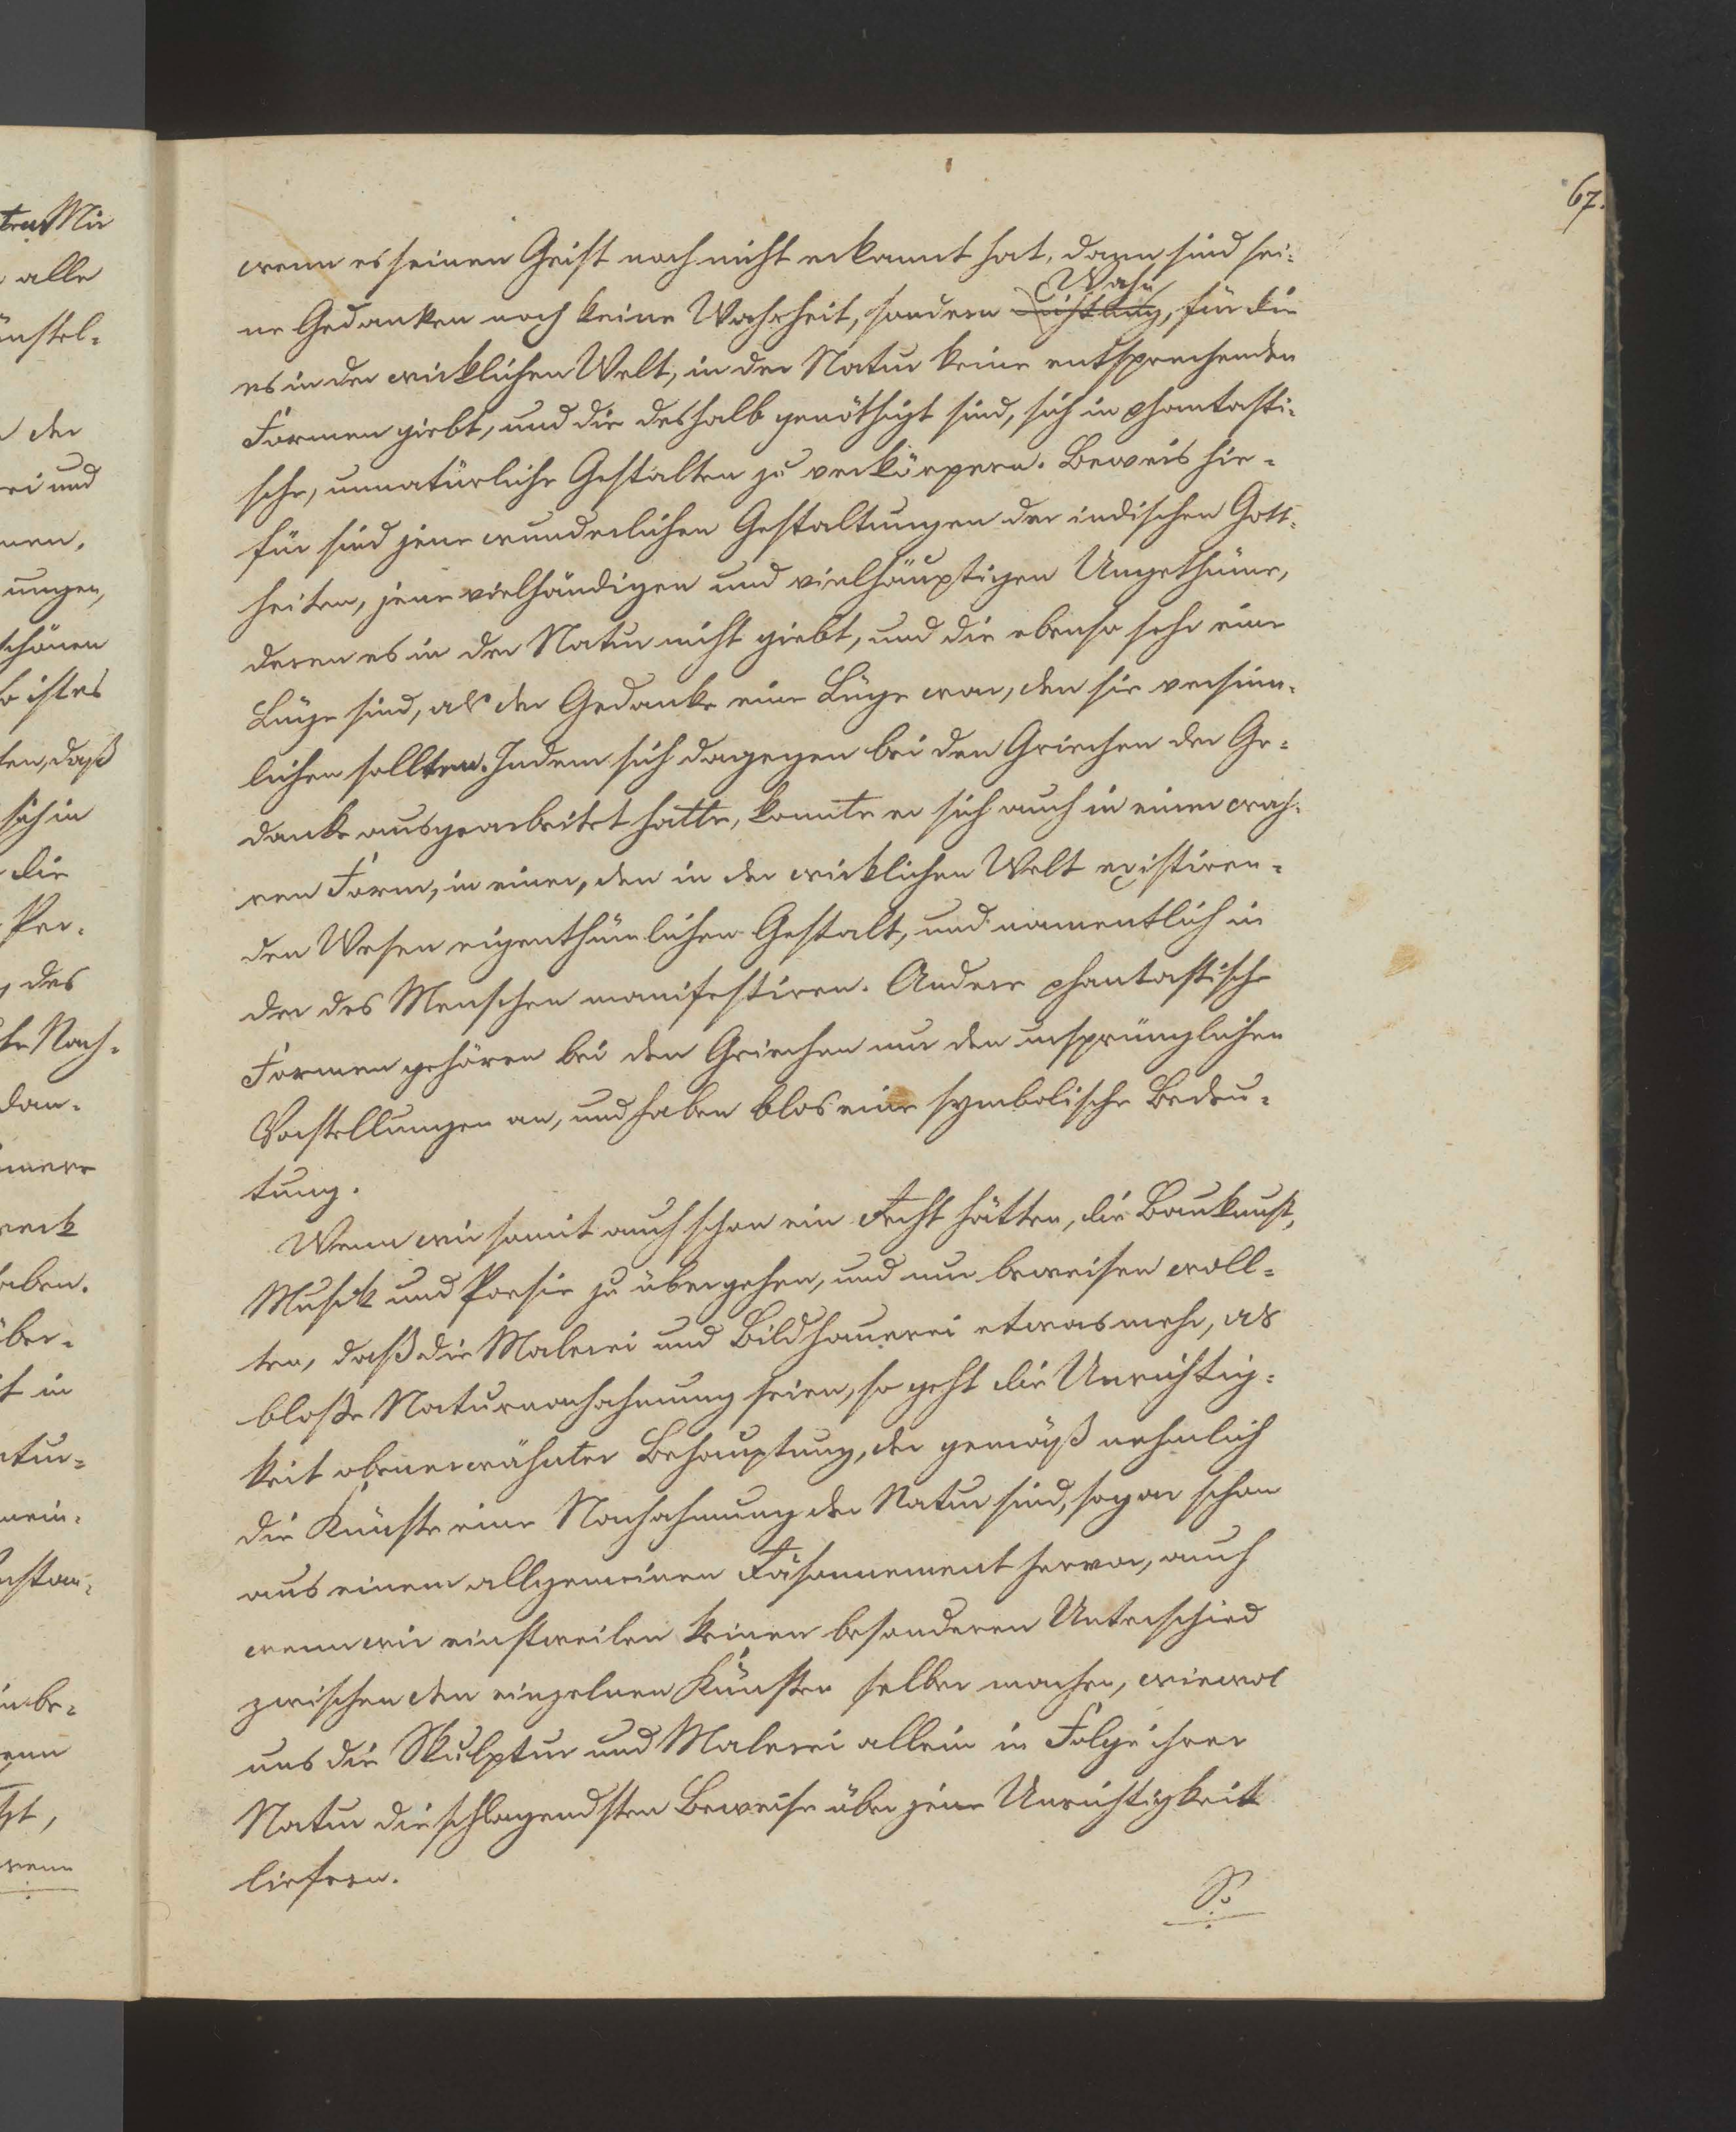 67.
wenn es seinen Geist noch nicht erkannt hat, dann sind sei-
ne Gedanken noch keine Wahrheit, sondern Wahn, für die
es in der wirklichen Welt, in der Natur keine entsprechenden
Formen giebt, und die deshalb genöthigt sind, sich in phantasti-
sche, unnatürliche Gestalten zu verkörpern. Beweis hie-
für sind jene wunderlichen Gestaltungen der indischen Gott-
heiten, jene vielhändigen und vielhäuptigen Ungethüme,
deren es in der Natur nicht giebt, und die ebenso sehr eine
Lüge sind, als der Gedanke eine Lüge war, den sie versinn-
lichen sollten. Indem sich dagegen bei den Griechen der Ge-
danke ausgearbeitet hatte, konnte er sich auch in einer wah-
ren Form, in einer, den in der wirklichen Welt existiren-
den Wesen eigenthümlichen Gestalt, und namentlich in
der des Menschen manifestiren. Andere phantastische
Formen gehören bei den Griechen nur den ursprünglichen
Vorstellungen an, und haben blos eine symbolische Bedeu-
tung.
Wenn wir somit auch schon ein Recht hätten, die Baukunst,
Musik und Poesie zu übergehen, und nur beweisen woll-
ten, daß die Malerei und Bildhauerei etwas mehr, als
bloße Naturnachahmung seien, so geht die Unrichtig-
keit obenerwähnter Behauptung, der gemäß nehmlich
die Künste eine Nachahmung der Natur sind, sogar schon
aus einem allgemeinen Räsonnement hervor, auch
wenn wir einstweilen keinen besonderen Unterschied
zwischen den einzelnen Künsten selber machen, wiewol
uns die Skulptur und Malerei allein in Folge ihrer
Natur die schlagendsten Beweise über jene Unrichtigkeit
liefern.
So